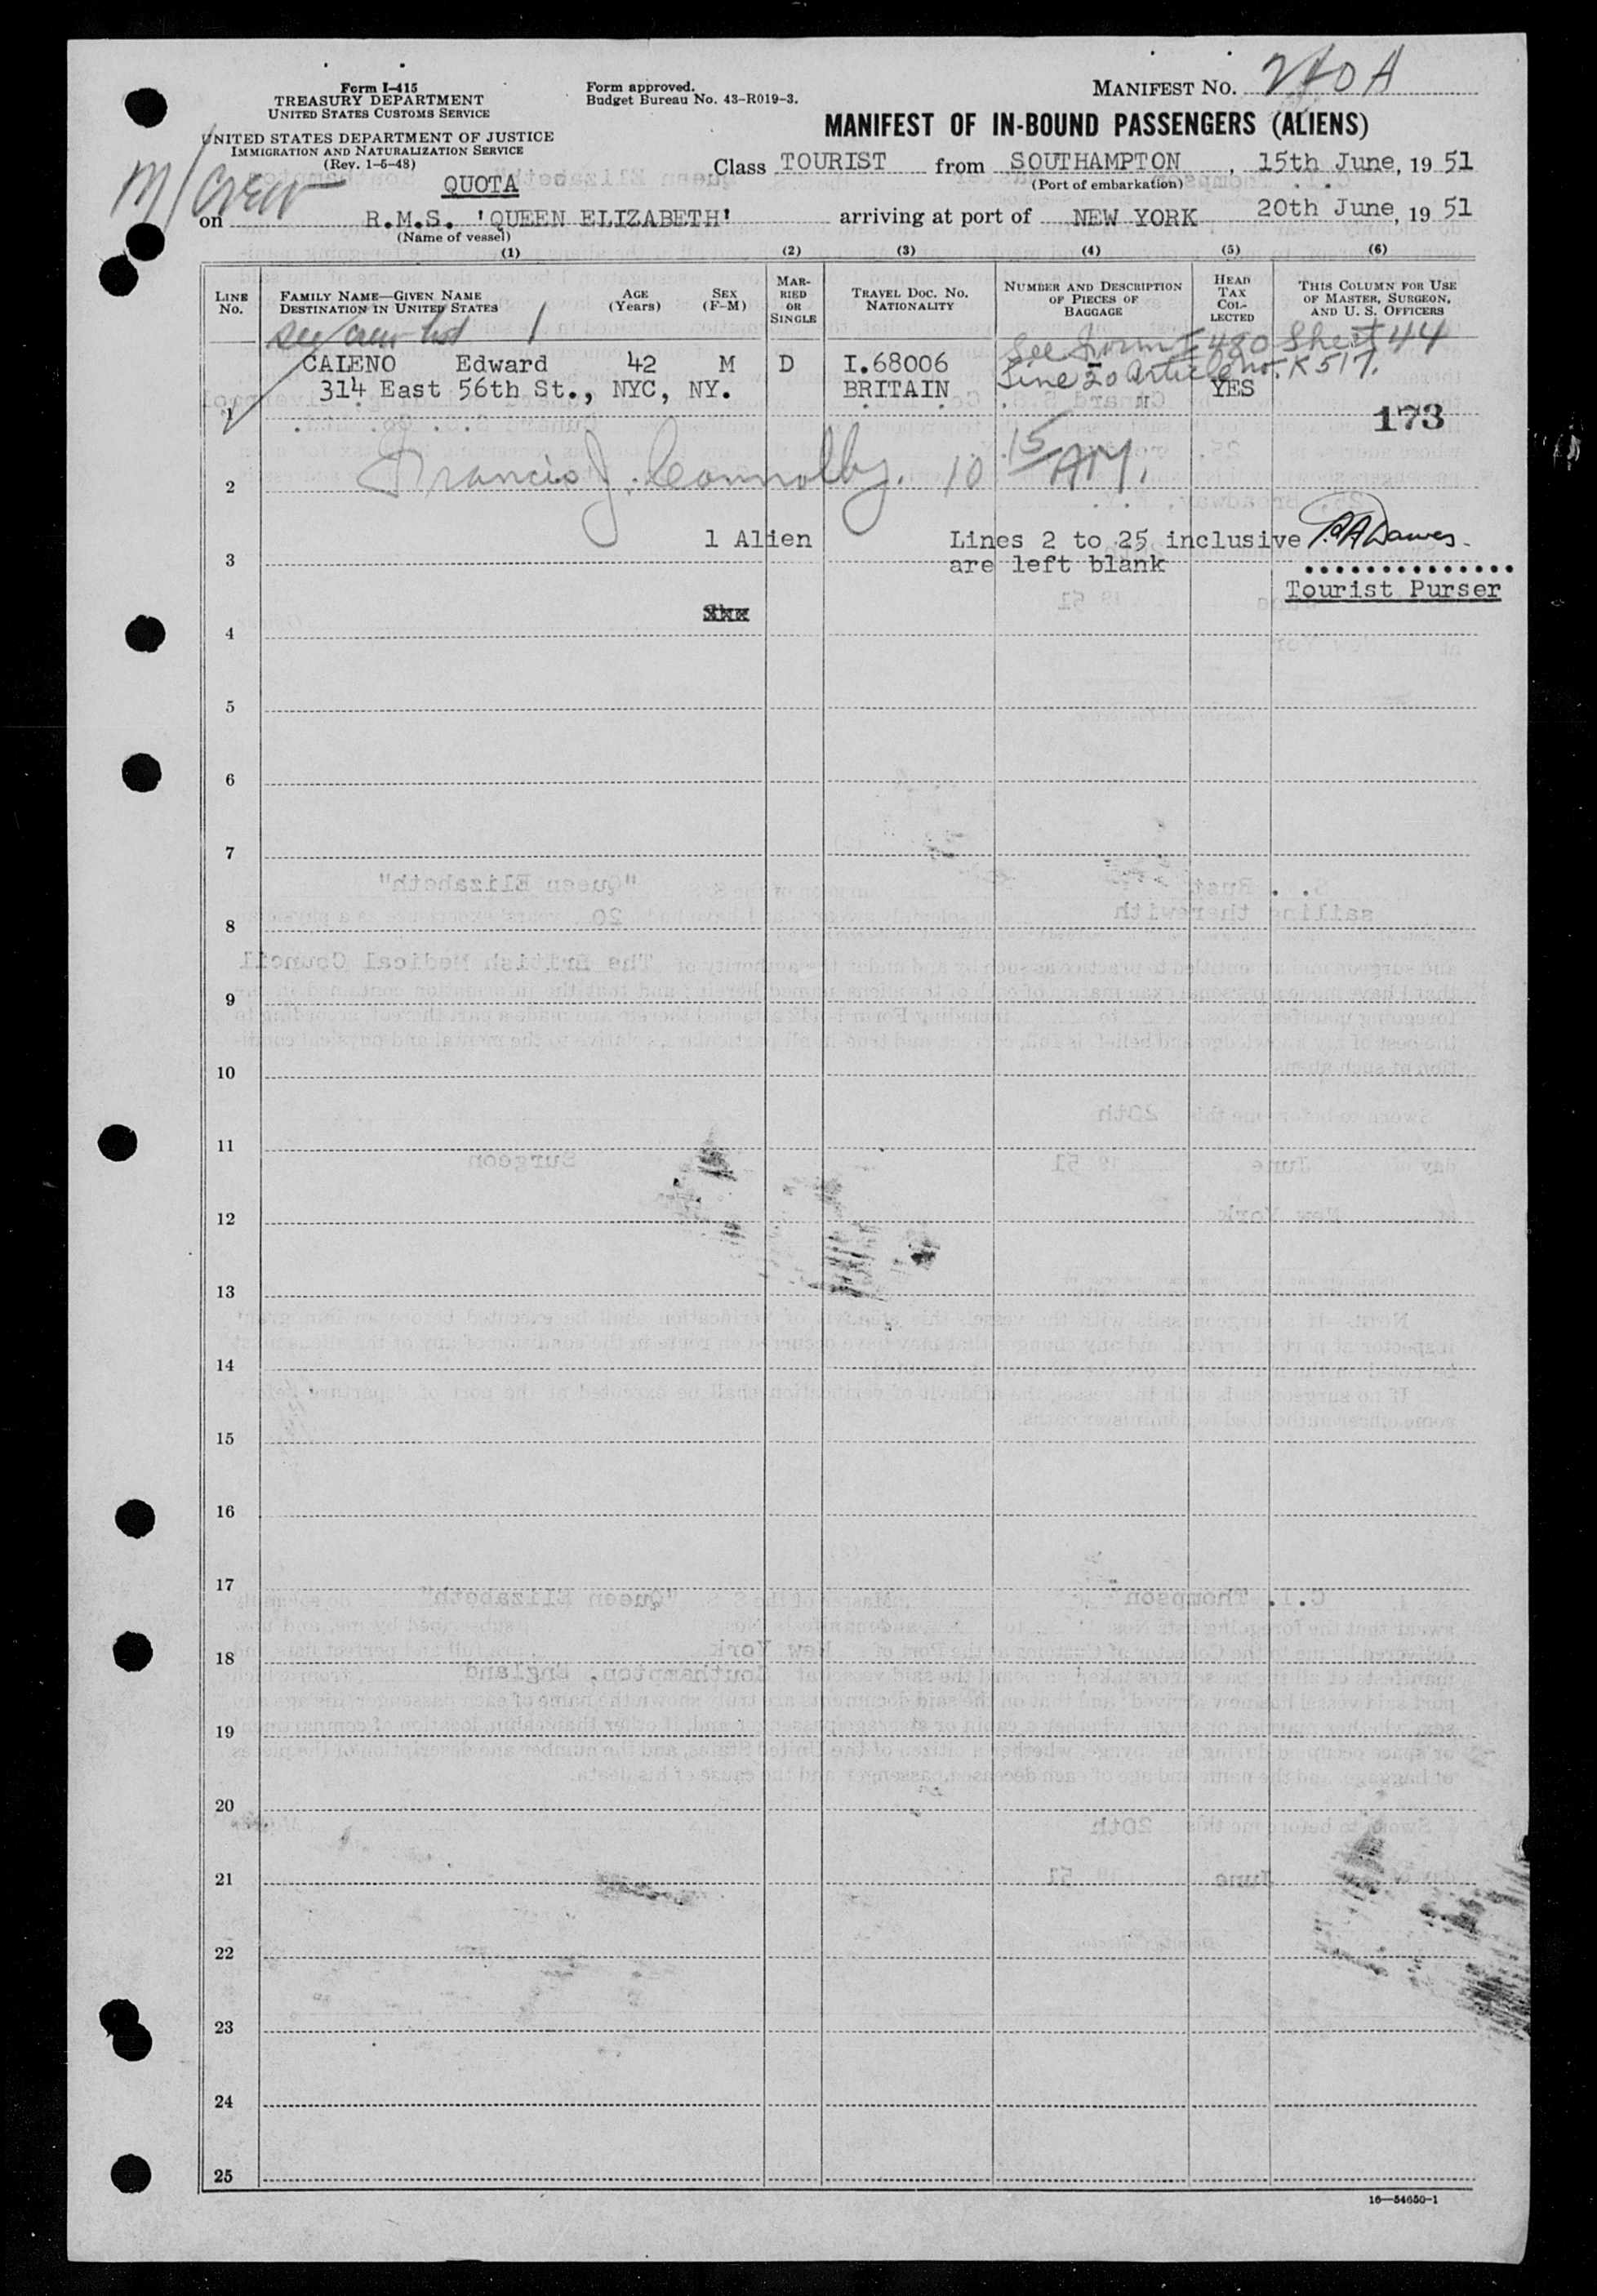 Form I-415
TREASURY DEPARTMENT
UNITED STATES CUSTOMS SERVICE
UNITED STATES DEPARTMENT OF JUSTICE
IMMIGRATION AND NATURALIZATION SERVICE
(Rev. 1-5-48)
Form approved.
Budget Bureau No. 43-R019-3.
MANIFEST No. 240 A
MANIFEST OF IN-BOUND PASSENGERS (ALIENS)
Class TOURIST from SOUTHAMPTON, 15th June, 1951
(Port of embarkation)
M/Crew
QUOTA
on R.M.S. 'QUEEN ELIZABETH' arriving at port of NEW YORK 20th June, 1951
(Name of vessel)
(1) (2) (3) (4) (5) (6)
LINE No.
FAMILY NAME—GIVEN NAME DESTINATION IN UNITED STATES
AGE (Years)
SEX (F-M)
MARRIED OR SINGLE
TRAVEL DOC. NO. NATIONALITY
NUMBER AND DESCRIPTION OF PIECES OF BAGGAGE
HEAD TAX COLLECTED
THIS COLUMN FOR USE OF MASTER, SURGEON, AND U. S. OFFICERS
see crew list 1
See Form I 480 Sheet 44
CALENO Edward 42 M D I.68006
Line 20 Article no. K517.
314 East 56th St., NYC, NY. BRITAIN YES
1 173
2 Francis J. Connolly. 10 15 AM.
1 Alien Lines 2 to 25 inclusive
3 are left blank
Tourist Purser
4
5
6
7
8
9
10
11
12
13
14
15
16
17
18
19
20
21
22
23
24
25
16—54650-1